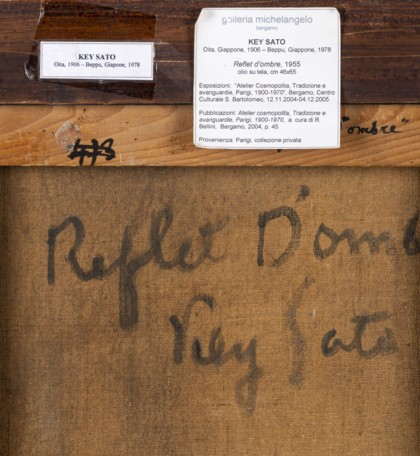 KEY SATO
Oita, 1906 – Beppu, Giapone, 1978
galleria michelangelo
bergamo
KEY SATO
Oita, Giappone, 1906 – Beppu, Giappone, 1978
Reflet d'ombre, 1955
olio su tela, cm 46x65
Esposizioni: "Atelier Cosmopolita, Tradizione e
avanguardie, Parigi, 1900-1970", Bergamo, Centro
Culturale S. Bartolomeo, 12.11.2004-04.12.2005
Pubblicazioni: Atelier cosmopolita, Tradizione e
avanguardie, Parigi, 1900-1970, a cura di R.
Bellini, Bergamo, 2004, p. 45
Provenienza: Parigi, collezione privata
"ombre"
Reflet D'omb
Key Sato